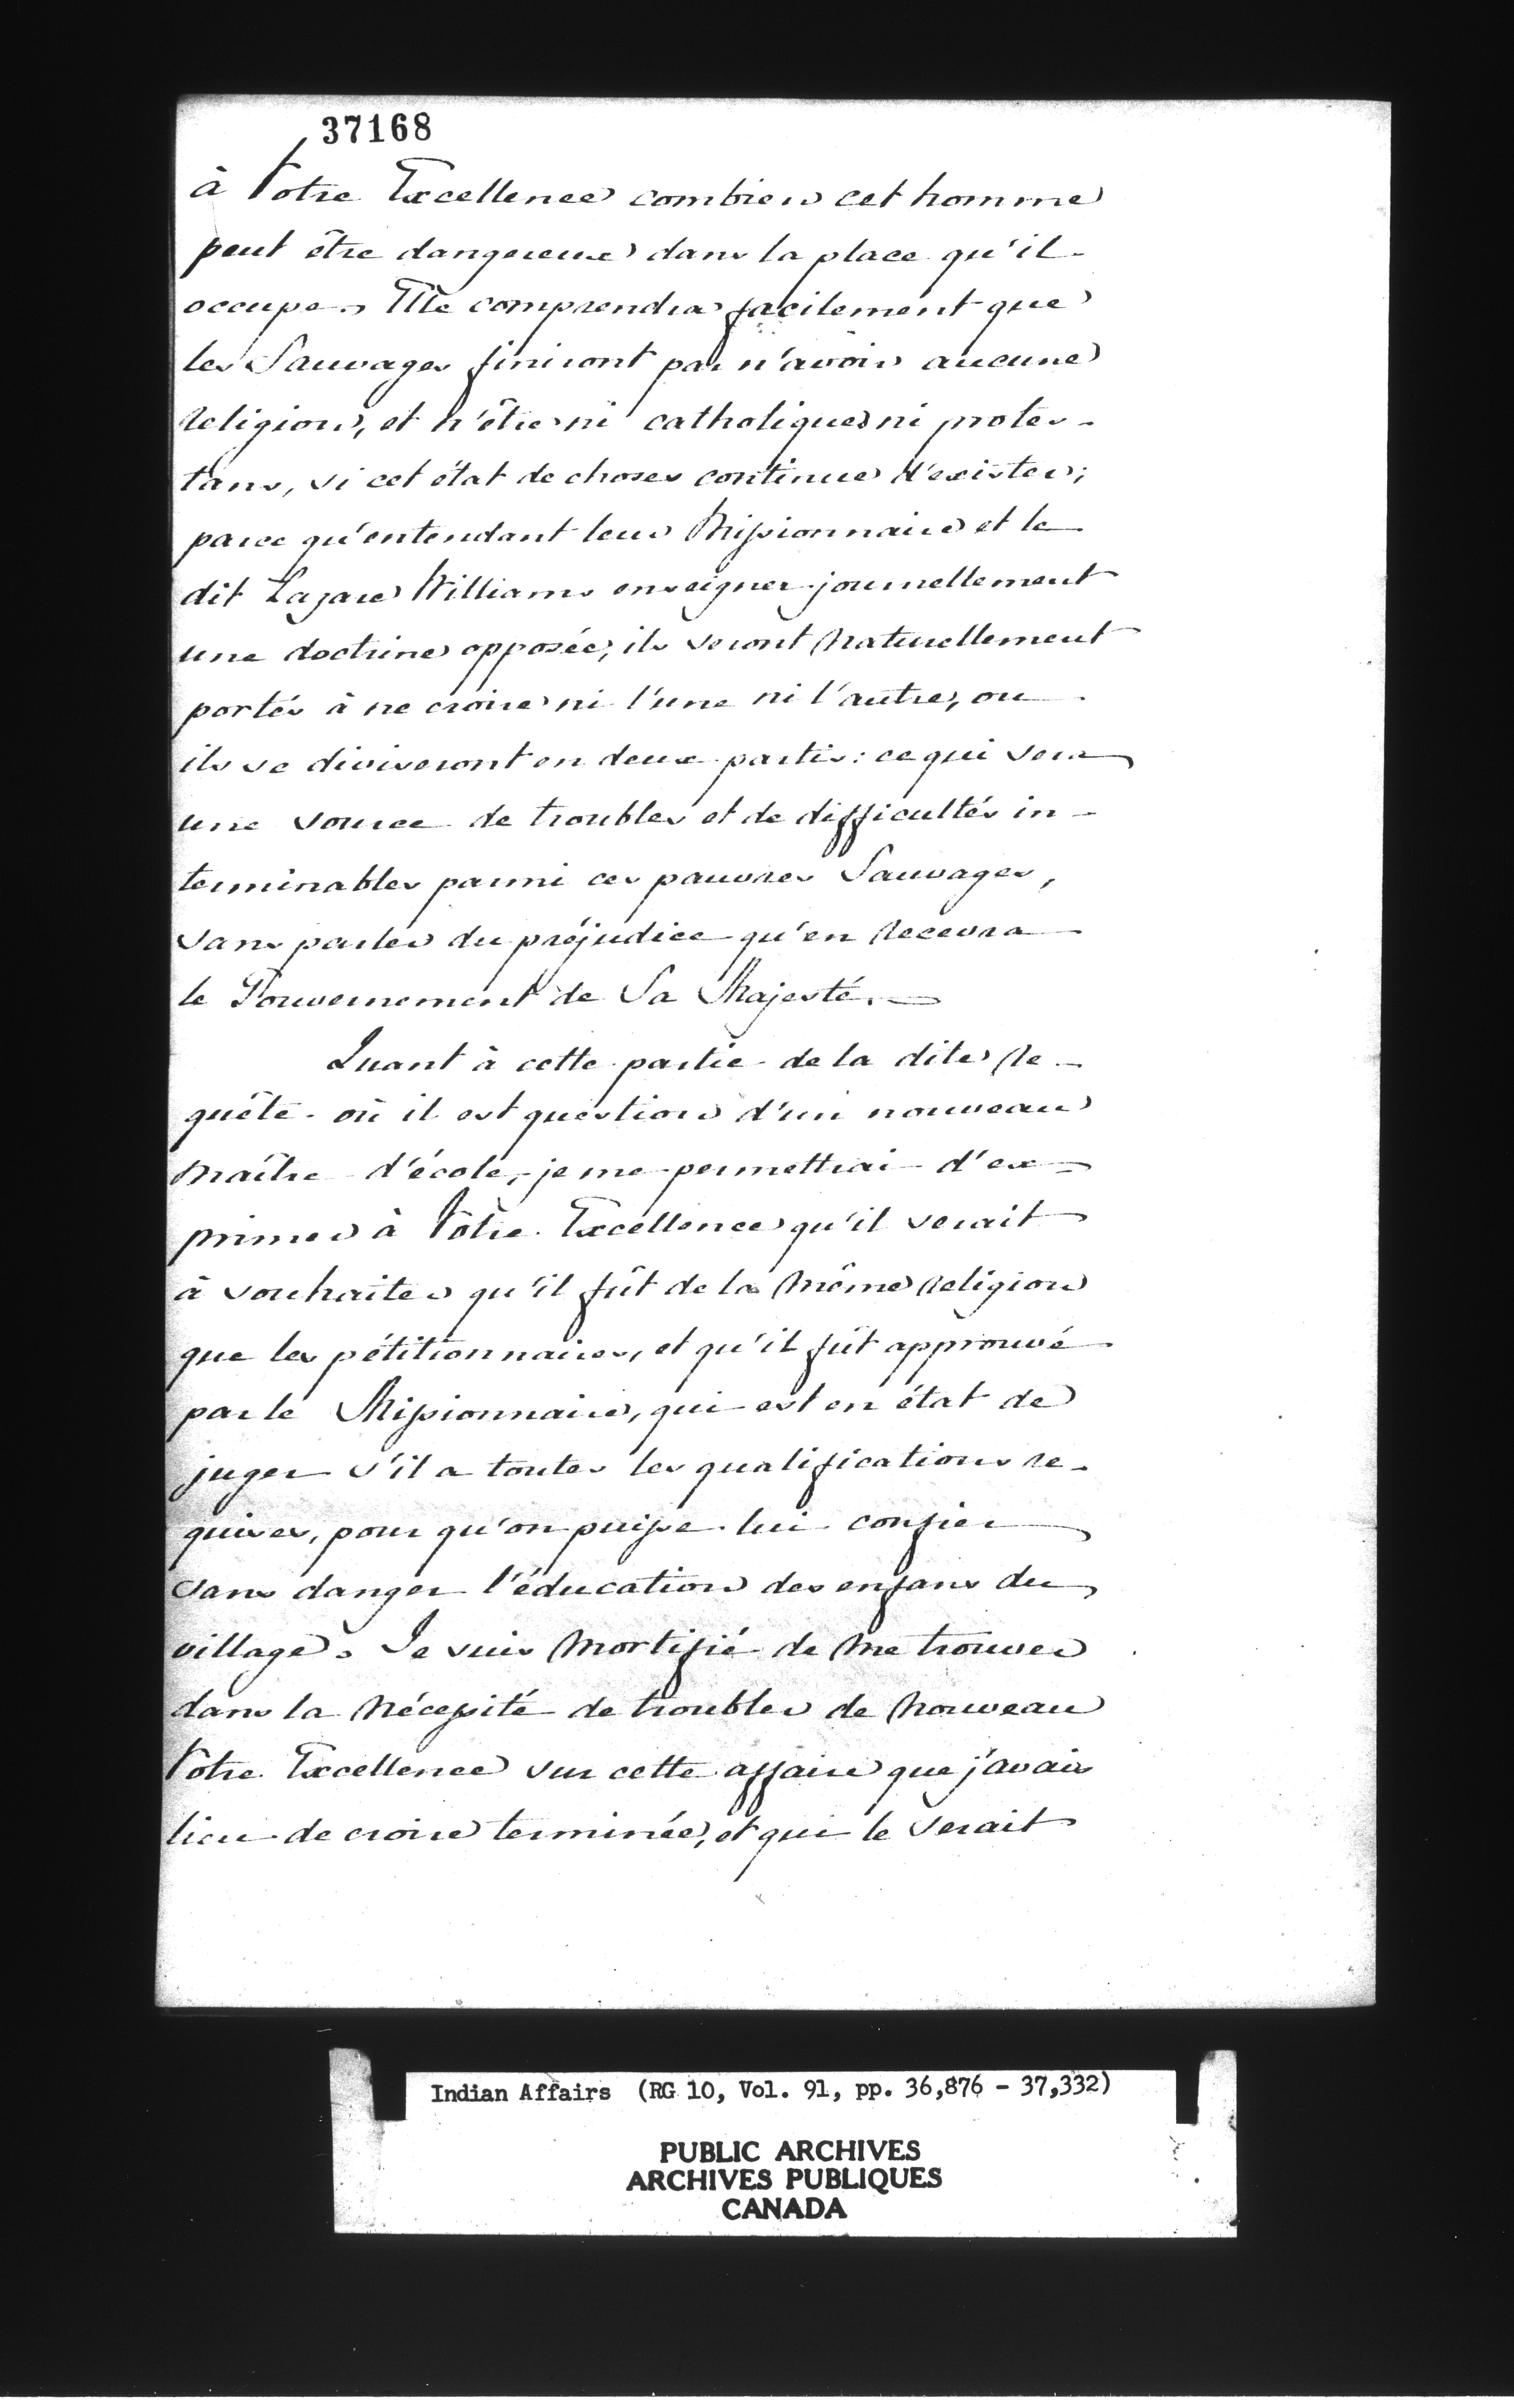 37168
à Votre Excellence combien cet homme
peut être dangereux dans la place qu'il
occupe. Elle comprendra facilement que
les Sauvages finiront par n'avoir aucune
religion, et n'être ni catholiques ni protes-
tans, si cet état de choses continue d'exister;
parce qu'entendant leur Missionnaire et le
dit Lazare Williams enseigner journellement
une doctrine opposée, ils seront naturellement
portés à ne croire ni l'une ni l'autre, ou
ils se diviseront en deux partis: ce qui sera
une source de troubles et de difficultés in-
terminables parmi ces pauvres Sauvages,
sans parler du préjudice qu'en recevra
le Gouvernement de Sa Majesté. —
Quant à cette partie de la dite re-
quête où il est question d'un nouveau
maître d'école, je me permettrai d'ex=
primer à Votre Excellence qu'il serait
à souhaiter qu'il fût de la même religion
que les pétitionnaires, et qu'il fût approuvé
par le Missionnaire, qui est en état de
juger s'il a toutes les qualifications re-
quises, pour qu'on puisse lui confier
sans danger l'éducation des enfans du
village. Je suis mortifié de me trouver
dans la nécessité de troubler de nouveau
Votre Excellence sur cette affaire que j'avais
lieu de croire terminée, et qui le serait
Indian Affairs (RG 10, Vol. 91, pp. 36,876 - 37,332)
PUBLIC ARCHIVES
ARCHIVES PUBLIQUES
CANADA